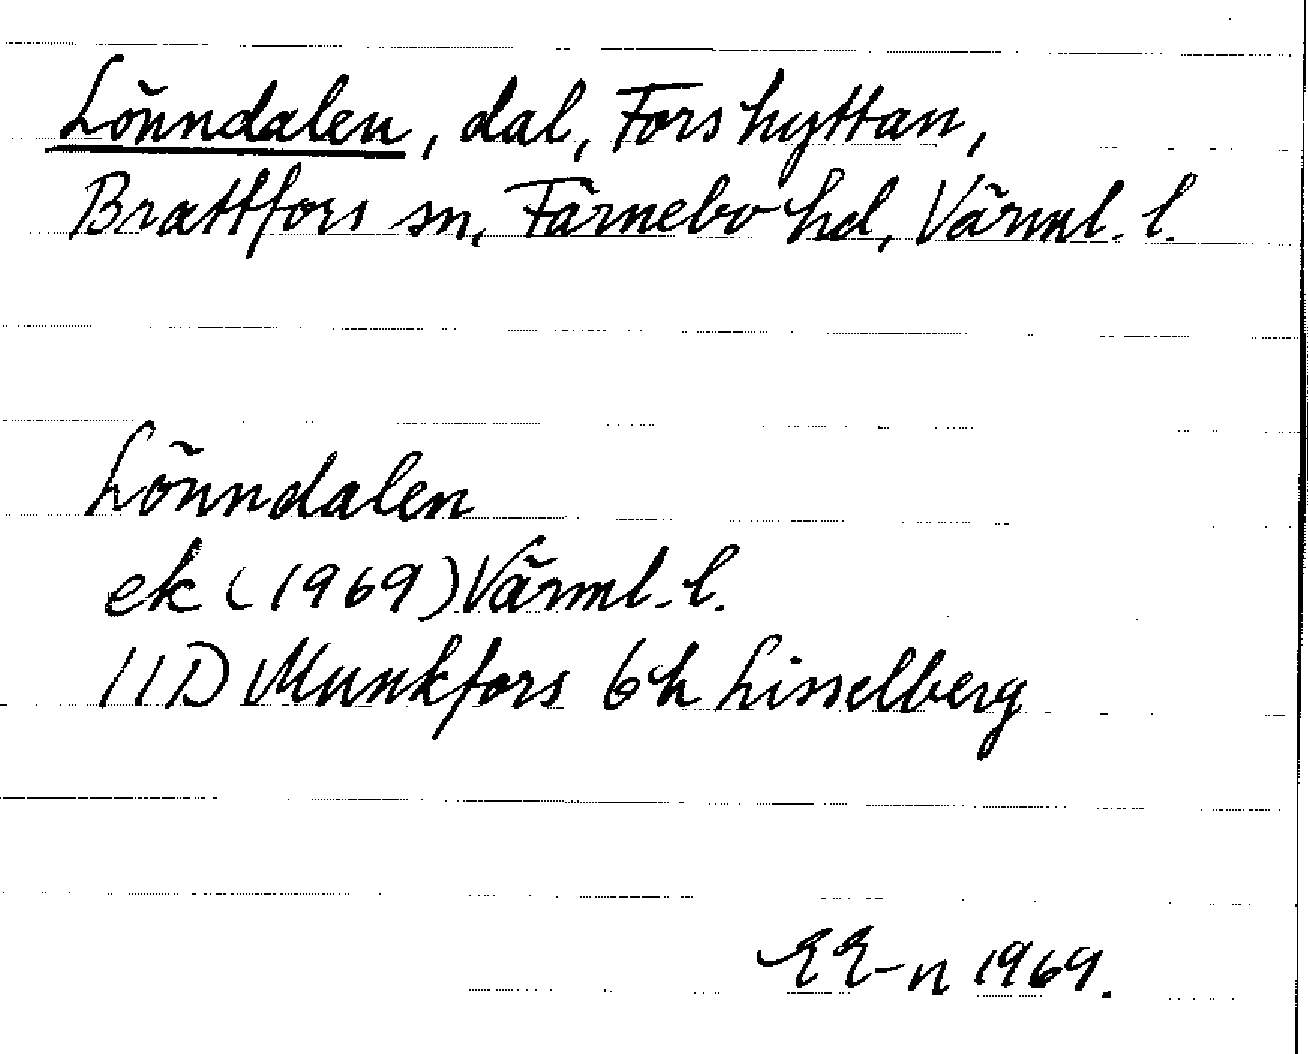 Lönndalen, dal, Forshyttan,
Brattfors sn, Färnebo hd, Värml. l.
Lönndalen
ek (1969) Värml. l.
11D Munkfors 6h Lisselberg
EE-n 1969.